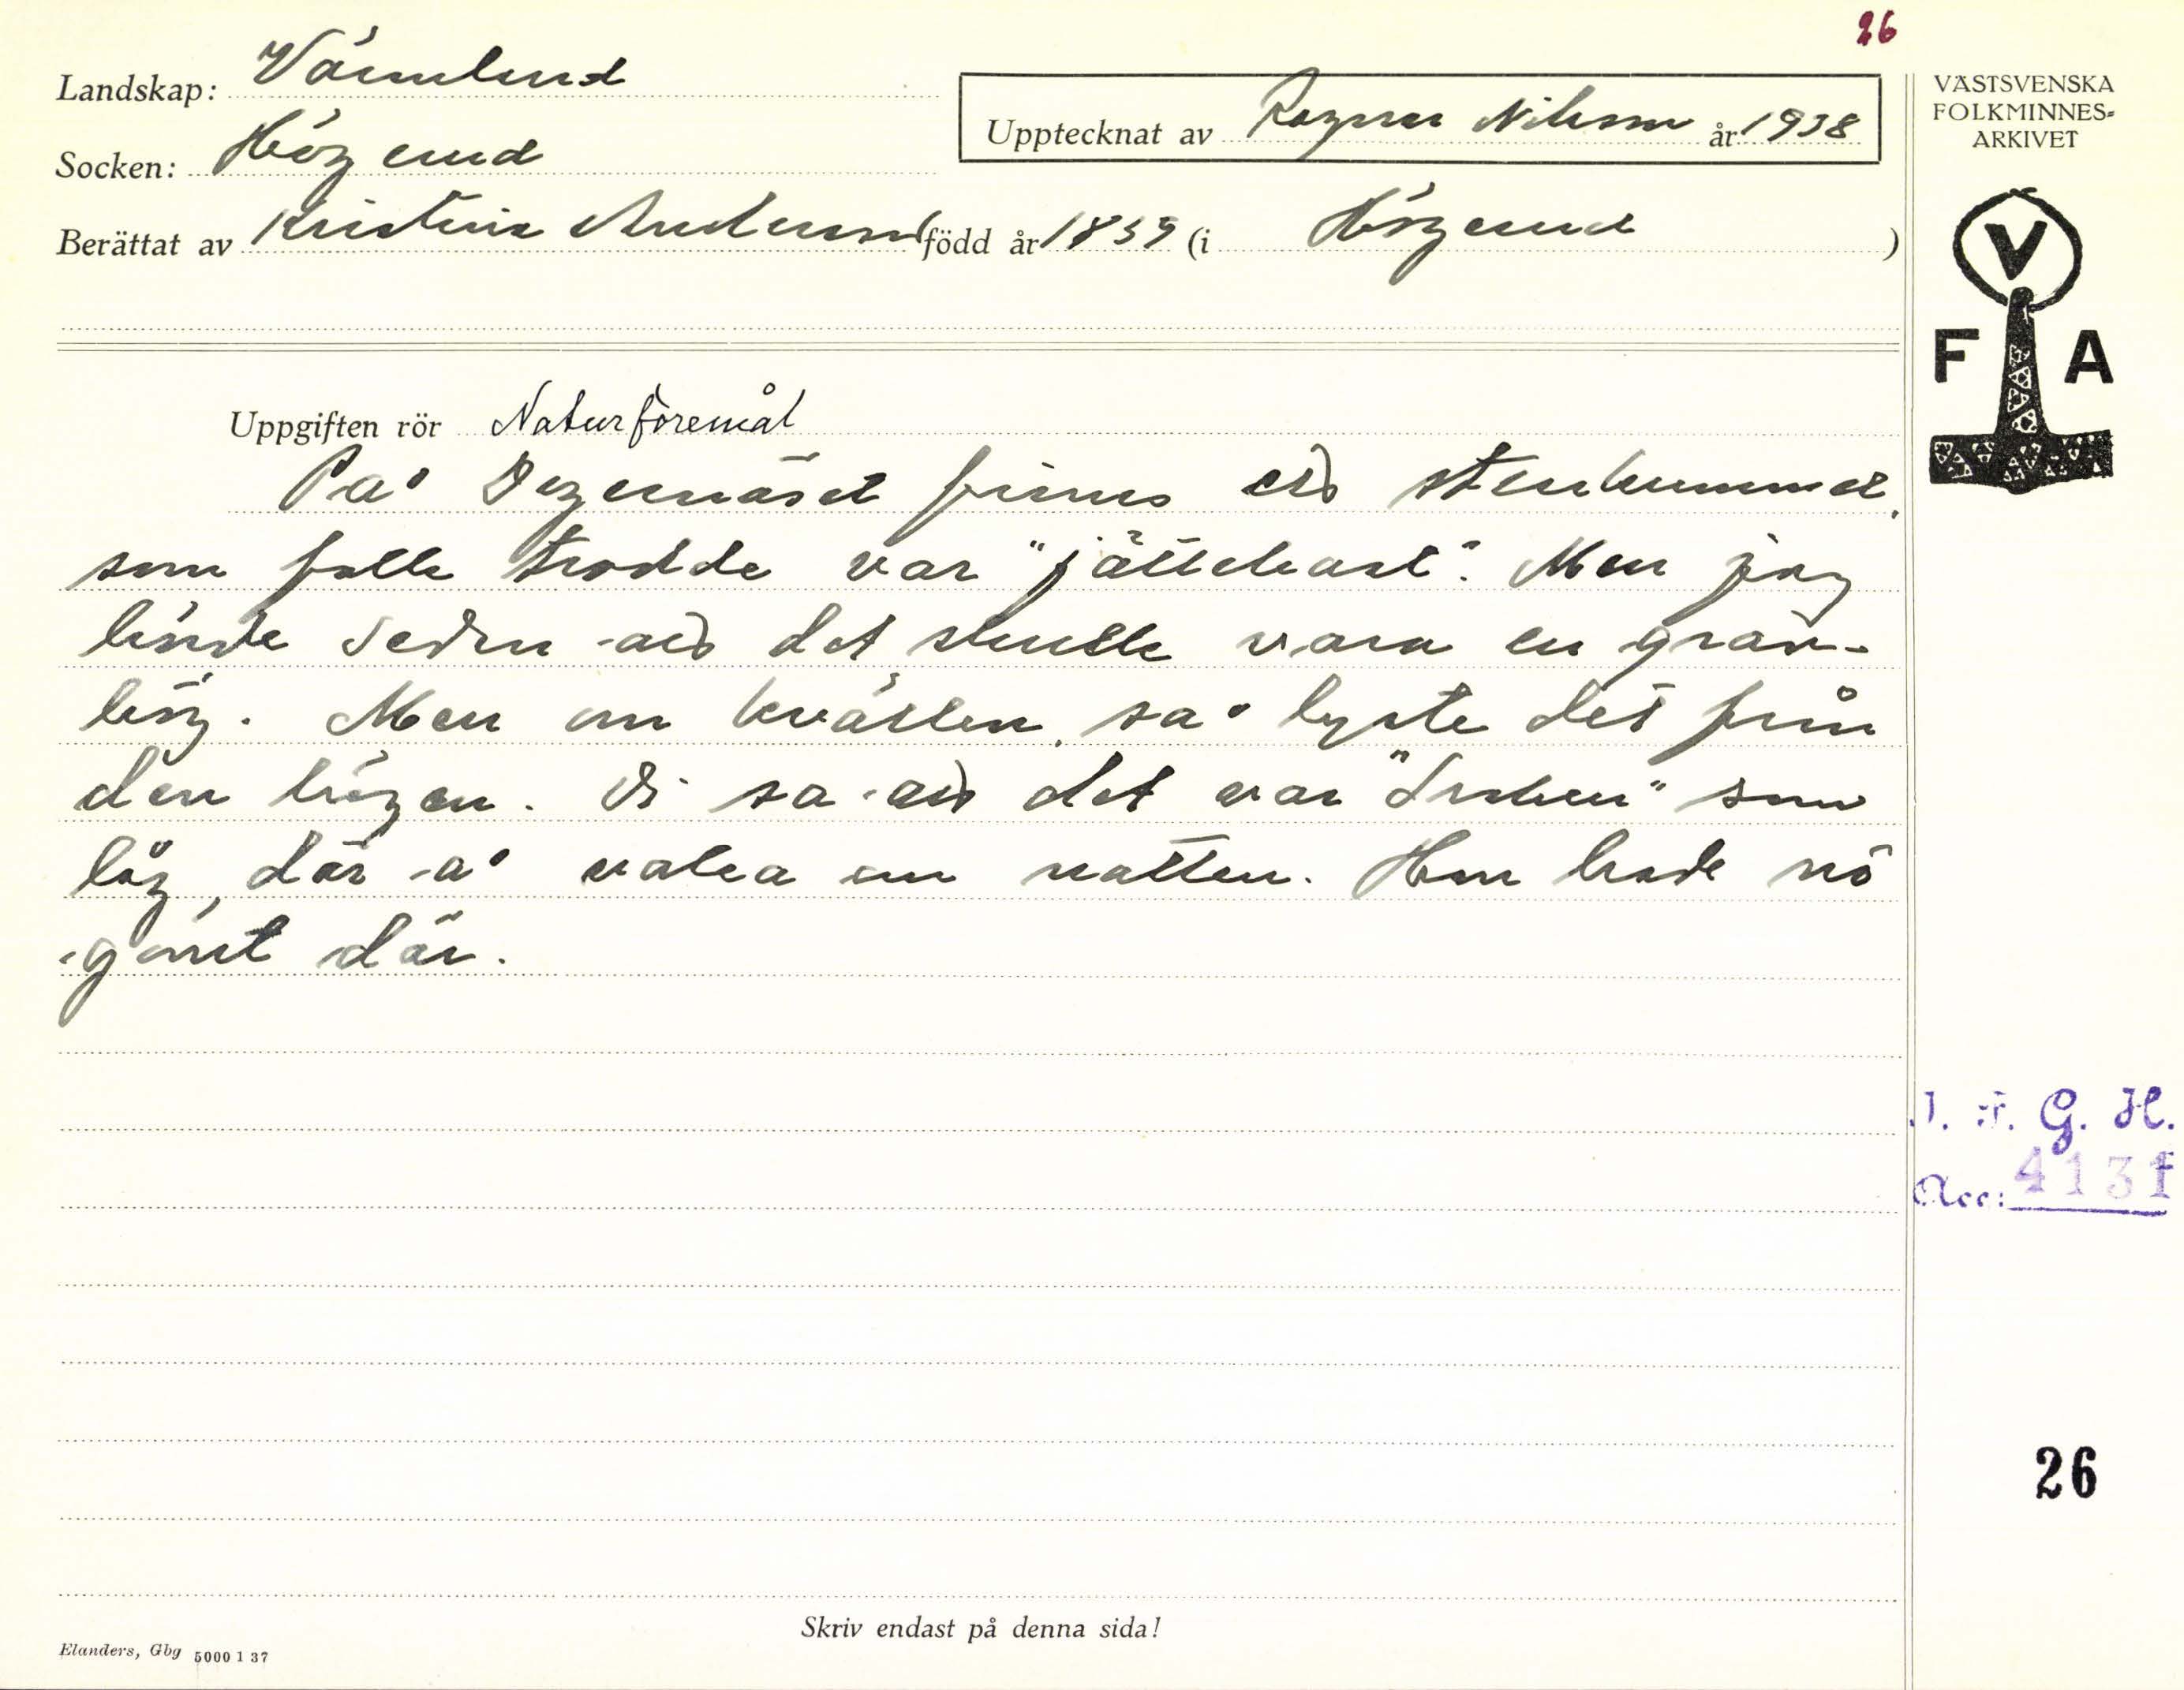 26
Landskap: Värmland
VÄSTSVENSKA
FOLKMINNES-
ARKIVET
Upptecknat av Ragnar Nilsson år 1938
Socken: Högerud
Berättat av Kristina Andersson född år 1859 (i Högerud)
V
F A
Uppgiften rör Naturföremål
På finns ett stenkummel,
som folk trodde var "jättekast". Men jag
hörde sedan att det skulle vara en grav-
hög. Men om kvällen, så lyste det från
den högen. Vi sa att det var "Draken" som
låg där å vakta om natten. Han hade nå
gömt där.
I. F. G. H.
Acc: 4131
26
Skriv endast på denna sida!
Elanders, Gbg 5000 1 37